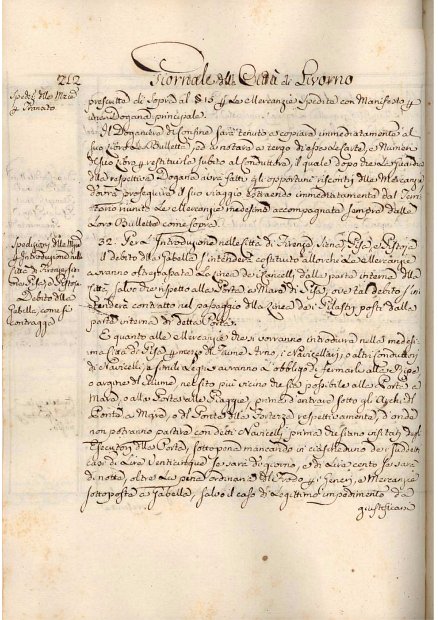 212 Giornale della Città di Livorno
Spediz. delle Merci
p Transito
prescritta di sopra al § 13 p Le Mercanzie Spedite con Manifesto p
una Dogana principale.
Il Doganiere di Confine sarà tenuto a copiare immediatamente al
suo Libro Le Bullette, ad annotare a tergo di esse Le
del suo Libro e restituirle subito al Conduttore, il quale dopo che Le Guardie
della respettiva Dogana averà fatti gli opportuni riscontri delle Mercanzie
dovrà proseguire il suo viaggio estraendo immediatamente dal Terri-
torio riunito Le Mercanzie medesime accompagnate sempre dalle
Loro Bullette come sopra.
Spedizioni delle Merci
p Introduzione nelle
Città di Firenze Sie-
na, Pisa, e Pistoja
Debito della
Gabella, come si
contragga
32. Per L'Introduzione nelle Città di Firenze, Siena, Pisa, e Pistoja
Il debito della Gabella s'intenderà costituito allorchè Le Mercanzie
averanno oltrepassata La Linea dei Cancelli dalla parte interna della
Città, salvo che rispetto alla Porta a Mare di Pisa, ove tal debito s'in-
tenderà contratto nel passaggio della Linea dei Pilastri posti dalla
parte interna di detta Porta.
E quanto alle Mercanzie che si vorranno introdurre nella medesi-
ma Città di Pisa p mezzo del Fiume Arno, i Navicellai, o altri Conduttori
di Navicelli, e simili Legni averanno L'obbligo di fermarli alle Ripe
o argine del Fiume, nel sito più vicino che sia possibile alla Porta a
Mare, o alla Porta alle Piagge, prima d'entrare sotto gli Archi del
Ponte a Mare, o del Ponte della Fortezza respettivamente, d'onde
non potranno partire con detti Navicelli, prima che siano visitati dagli
Esecutori della Porta, sotto pena mancando in ciascheduno dei suddetti
casi di Lire Venticinque se sarà di giorno, e di Lire cento se sarà
di notte, oltre La pena ordinaria del Frodo p i Generi, e Mercanzie
sottoposte a Gabella, salvo il caso di Legittimo impedimento da
giustificarsi